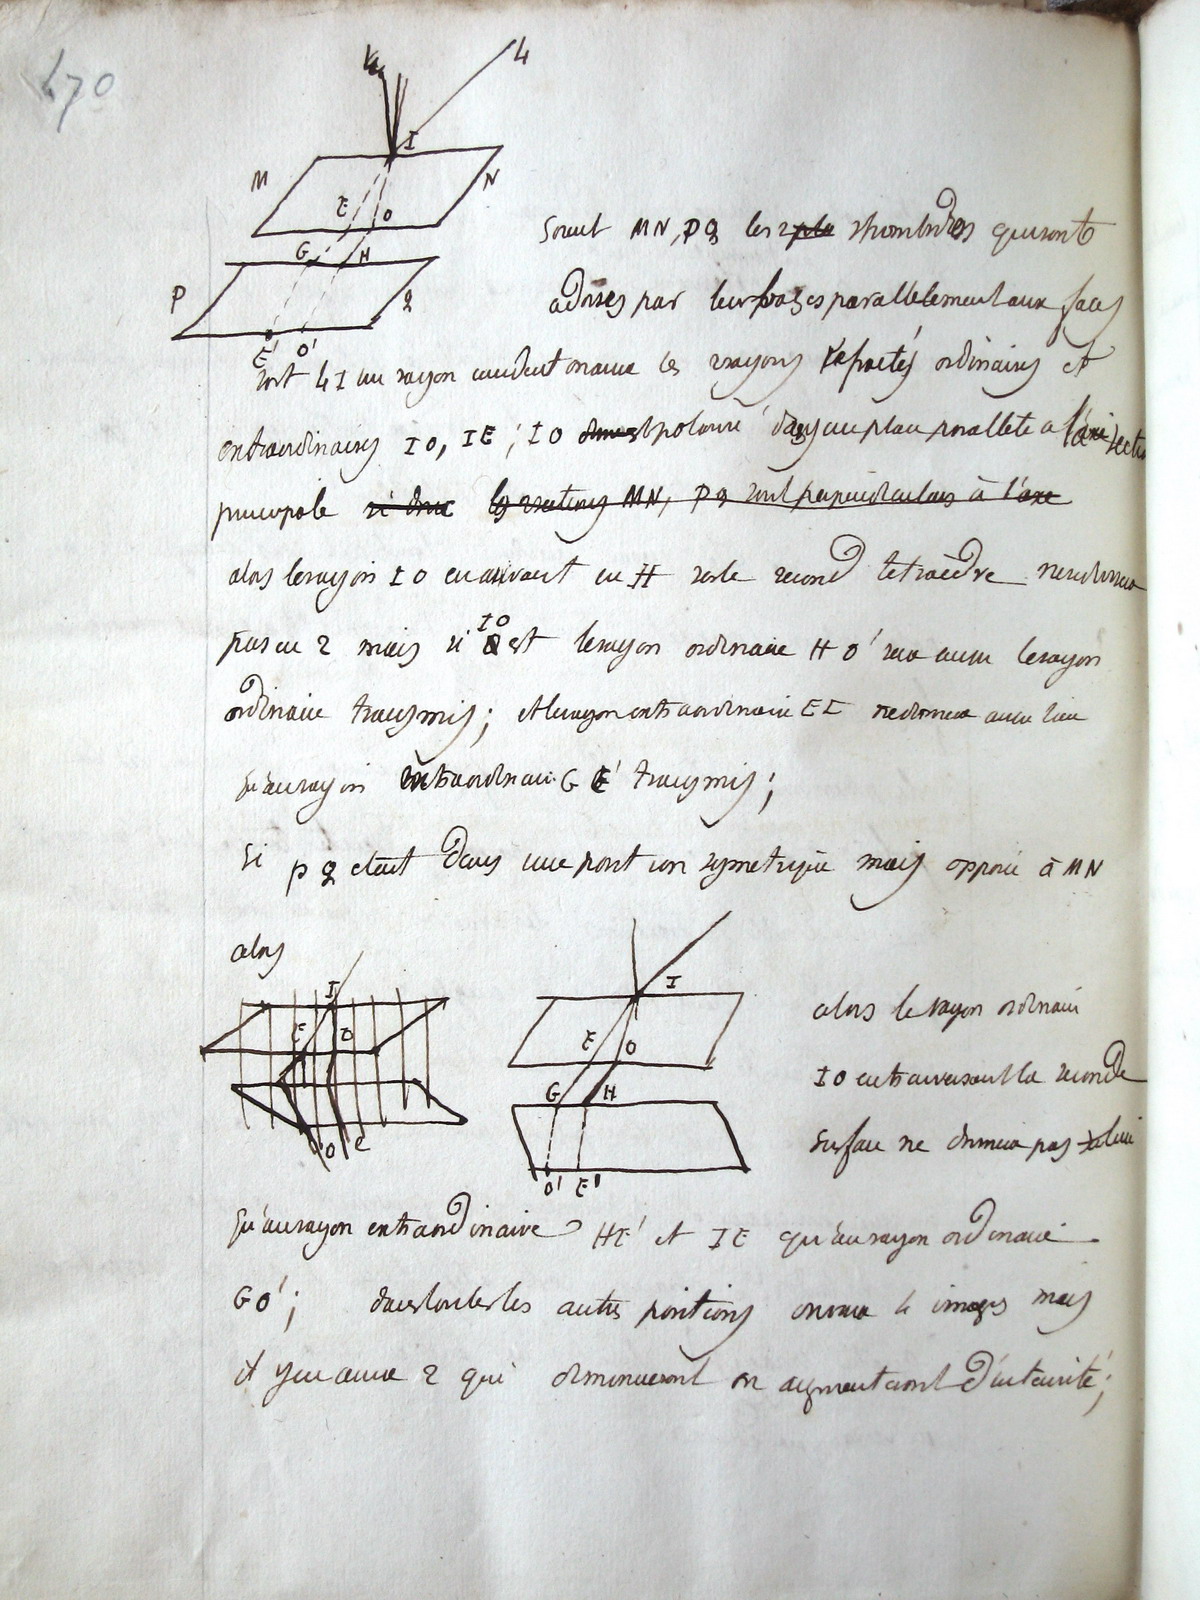 470
4
I
M
N
E
O
G
H
P
q
E' O'
Soient MN, pq les 2 rhomboides qui sont
adossés par leurs bases parallelement aux faces
soit LI un rayon incident on aura les rayons refractés ordinaires et
extraordinaires IO, IE ; IO polarisé dans un plan parallele a
principale si donc les sections MN, pq sont perpendiculaires à l'axe
alors le rayon IO en arrivant en H sur le second tetraèdre ne se divisera
pas en 2 mais si IO est le rayon ordinaire HO' sera aussi le rayon
ordinaire transmis ; et le rayon extraordinaire EI ne donnera aussi lieu
qu'au rayon extraordinaire GE' transmis ;
Si pq etait dans une position symetrique mais opposée à MN
alors
I
E O
O e
I
E O
G H
O' E'
alors le rayon ordinaire
IO en traversant la seconde
surface ne donnera pas
qu'au rayon extraordinaire HE' et IE qu'au rayon ordinaire
GO' ; dans toutes les autres positions on aura 4 images mais
il y en aura 2 qui diminueront ou augmenteront d'intensité ;